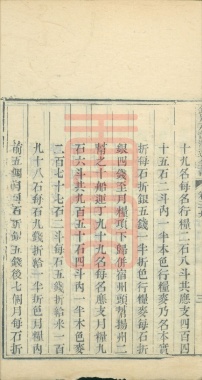 十九名每名行糧二石八斗共應支四百四
十五石二斗內一半本色行糧麥乃名本實
折每石折銀五錢一半折色行糧麥每石折
銀四錢至月糧項下歸併宿州頭幫揚州二
幫之十船運丁九十九名每名應支月糧九
石六斗共九百五十石四斗內一半本色麥
二百七十七石二斗每石五錢折給米一百
九十八石每石九錢折給一半折色月糧內
前五個月每石折銀五錢後七個月每石折